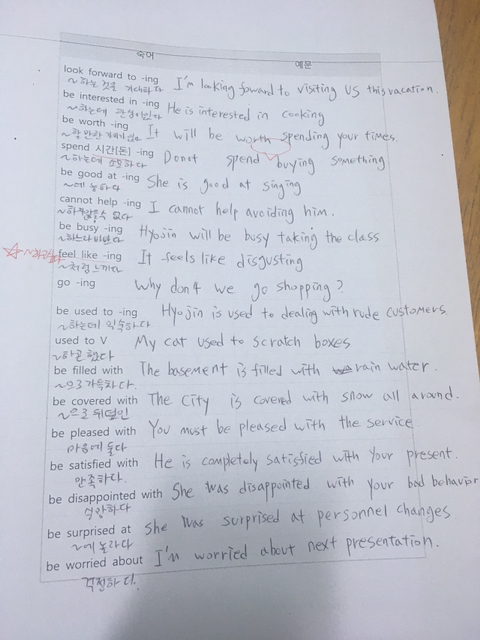 숙어 예문
look forward to -ing I'm looking foward to visiting US this vacation.
~하는 것을 기대하다
be interested in -ing He is interested in cooking
~하는데 관심이있다
be worth -ing It will be worth spending your times.
spend 시간[돈] -ing Do not spend buying something
~하는데 소모하다
be good at -ing She is good at singing
~에 능하다
cannot help -ing I cannot help avoiding him.
be busy -ing Hyojin will be busy taking the class
~하느라 바쁘다
feel like -ing It feels like disgusting
~처럼 느끼다
go -ing Why don't we go shopping?
be used to -ing Hyojin is used to dealing with rude customers
~하는데 익숙하다
used to V My cat used to scratch boxes
~하곤 했다
be filled with The basement is filled with rain water.
~으로 가득차다.
be covered with The city is covered with snow all around.
~으로 뒤덮인
be pleased with You must be pleased with the service
마음에 들다
be satisfied with He is completely satisfied with your present.
만족하다.
be disappointed with She was disappointed with your bad behavior
실망하다
be surprised at She was surprised at personnel changes
~에 놀라다
be worried about I'm worried about next presentation.
걱정하다.